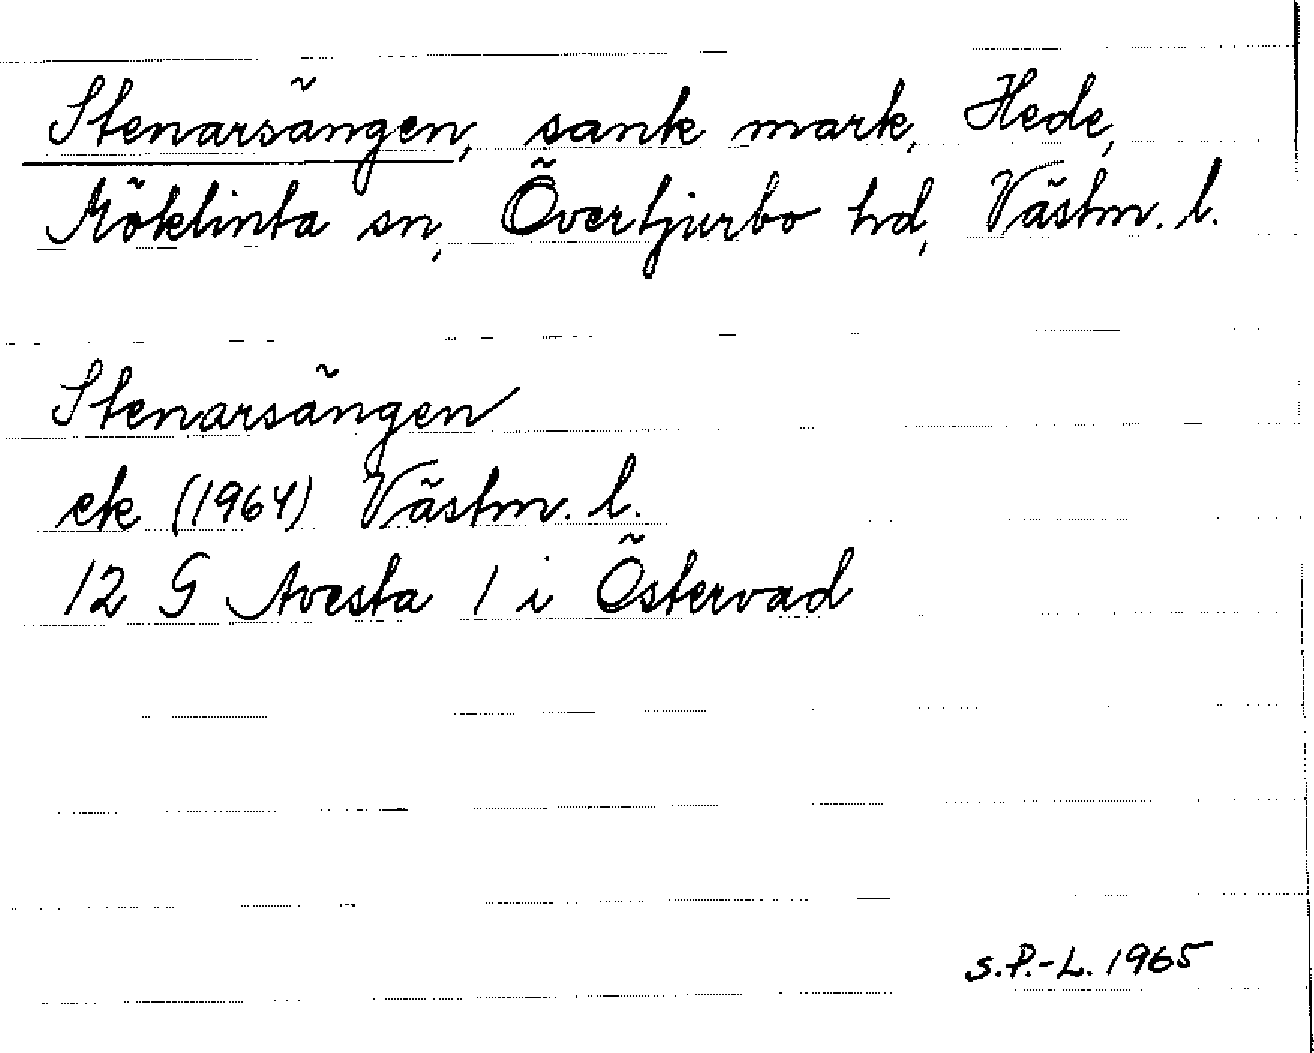 Stenarsängen, sank mark, Hede,
Möklinta sn, Övertjurbo hd, Västm. l.
Stenarsängen
ek (1964) Västm. l.
12 G Avesta 1 i Östervad
S.P.-L. 1965